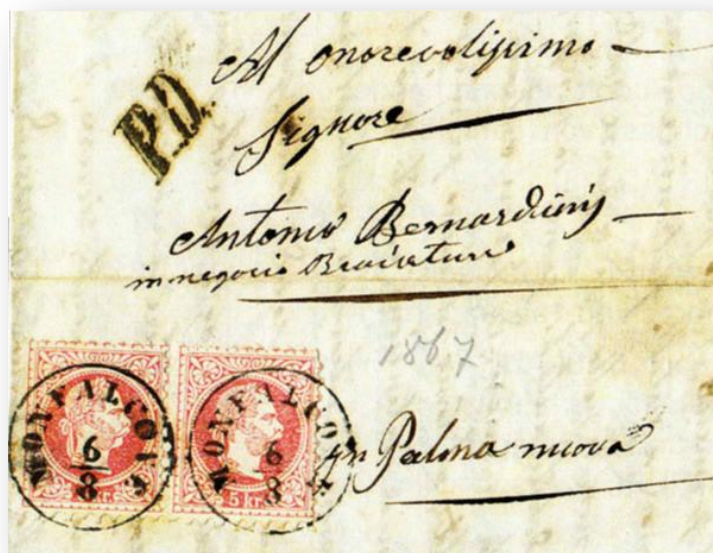 P.D.
Al onorevolissimo
Signore
Antonio Bernardinis
in negocio
1867
MONFALCONE
6/8
MONFALCONE
6/8
5 kr.
in Palma nuova